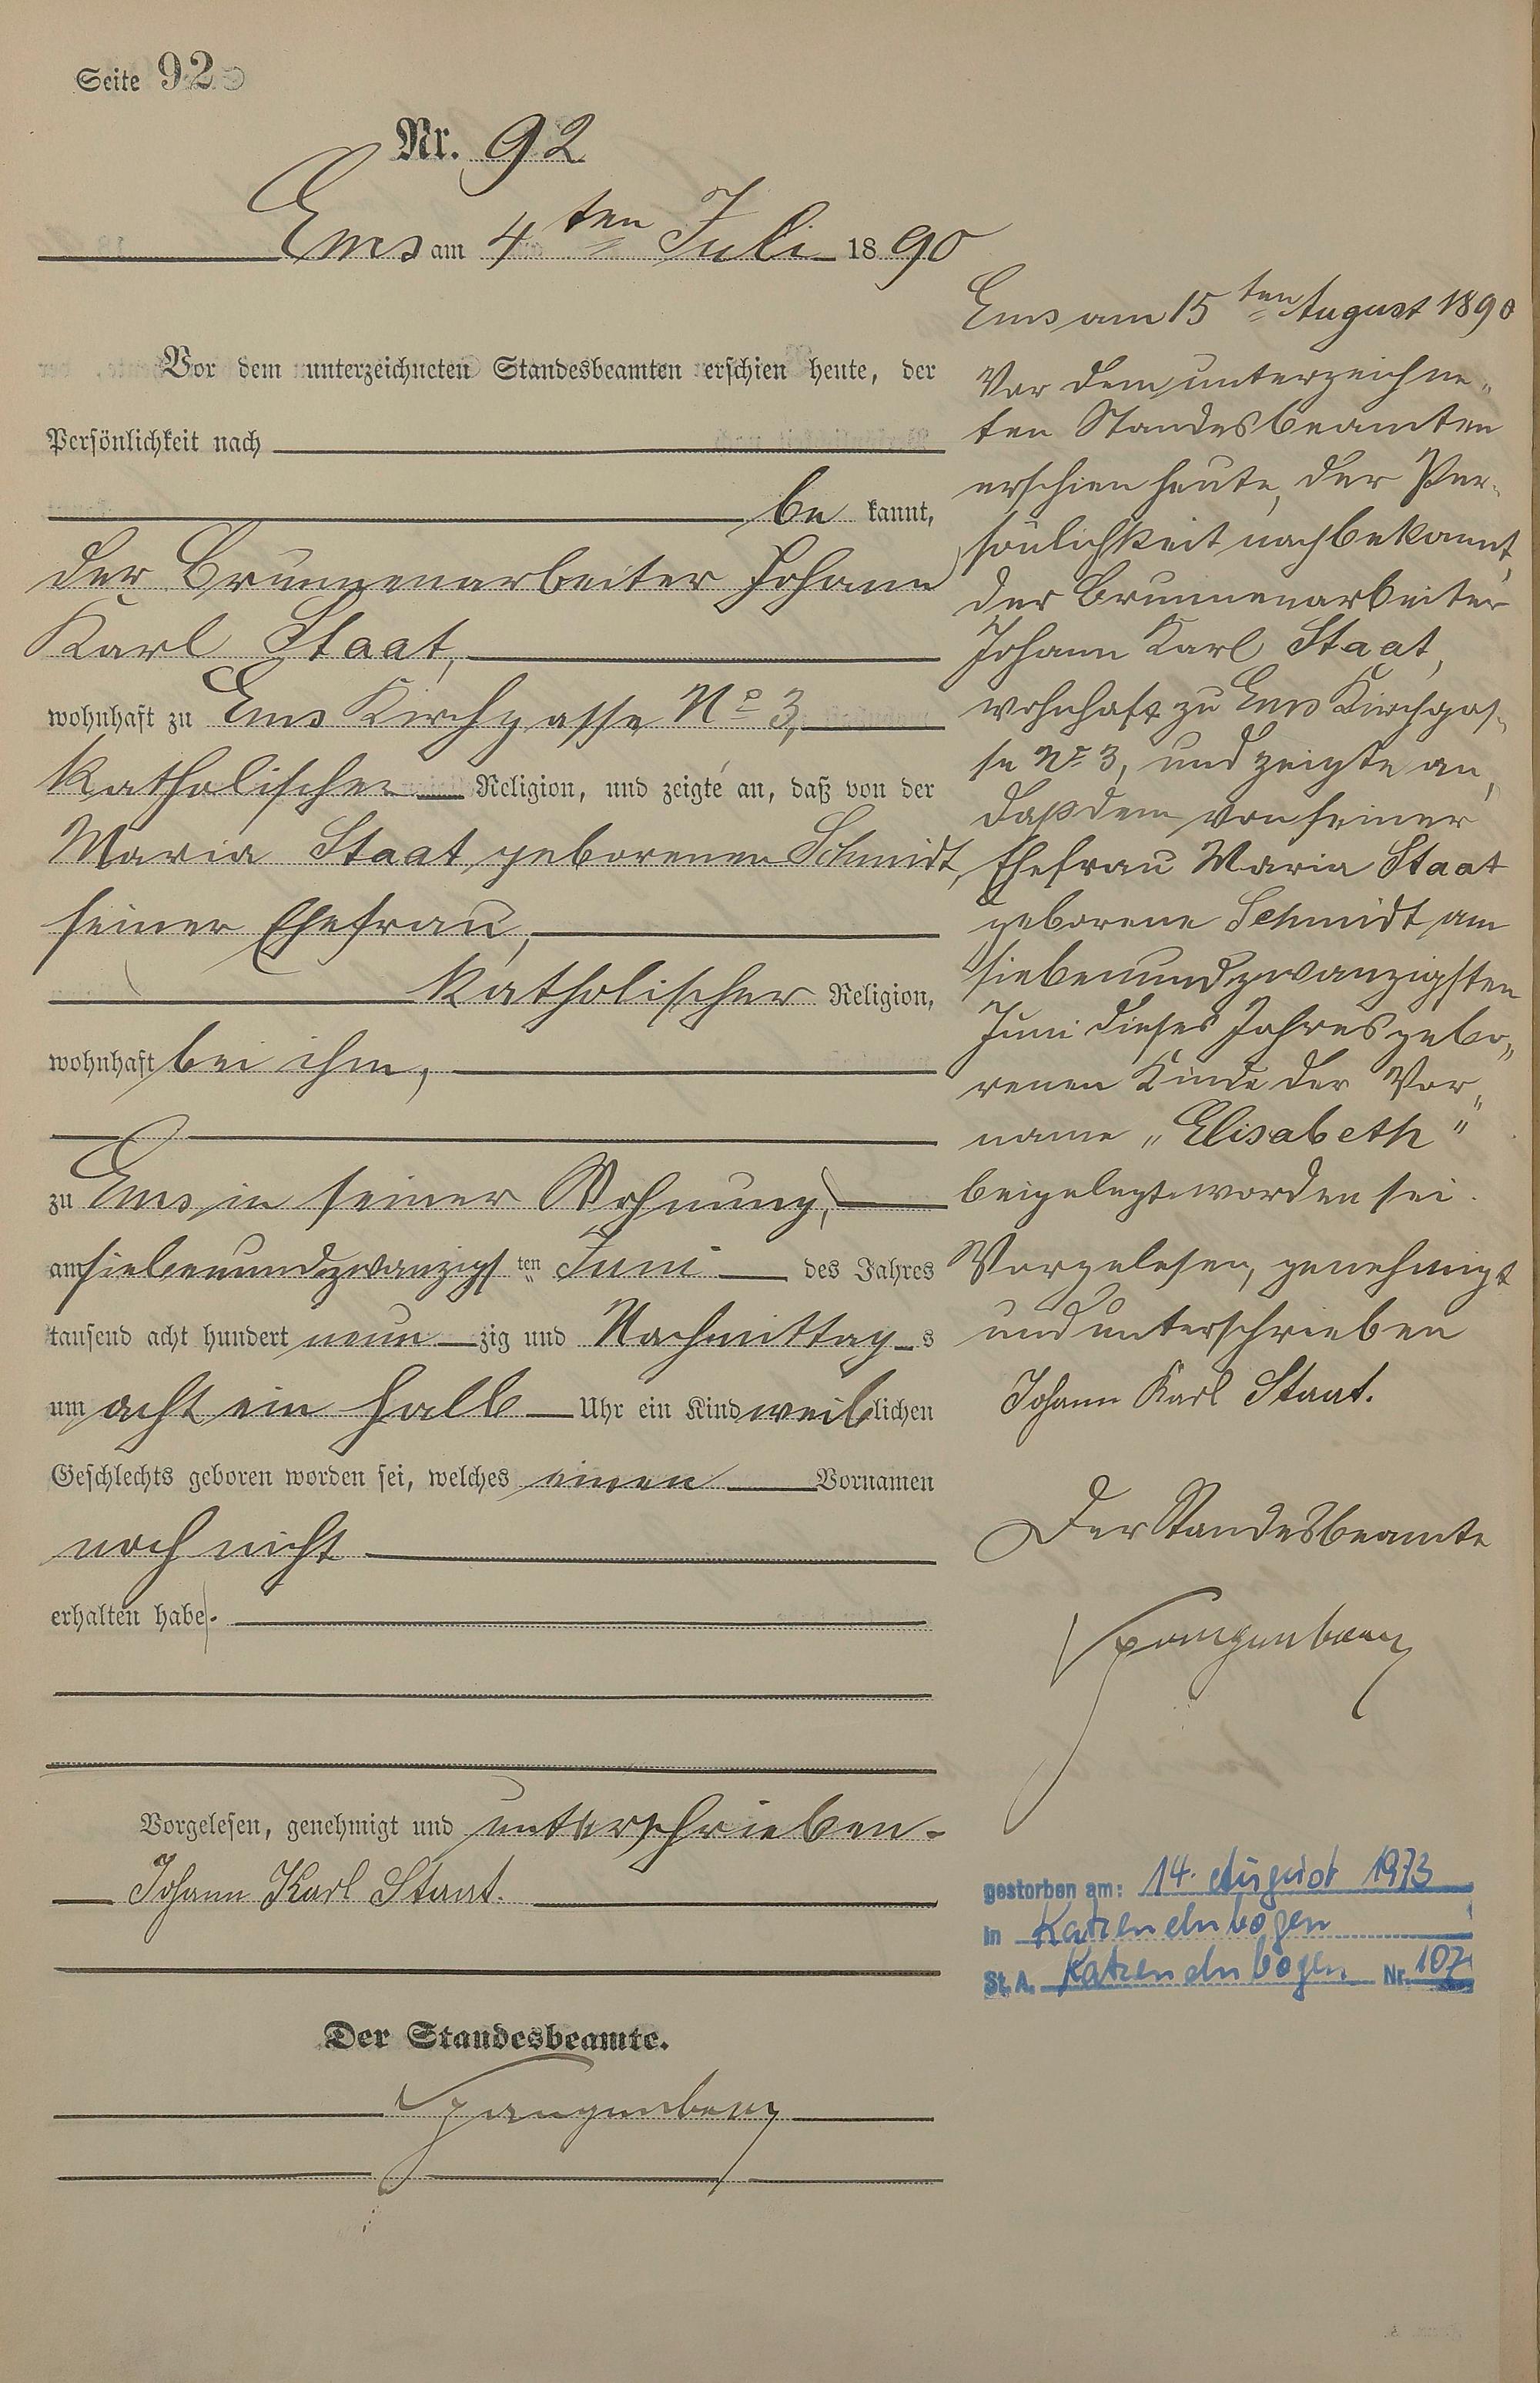 Seite 92
Nr. 92
Ems am 4ten Juli 1890
Vor dem unterzeichneten Standesbeamten erschien heute, der
Persönlichkeit nach
be kannt,
der Brunnenarbeiter Johann
Karl Staat,
wohnhaft zu Ems Kirchgasse No 3,
katholischer Religion, und zeigte an, daß von der
Maria Staat geborenen Schmidt,
seiner Ehefrau,
katholischer Religion,
wohnhaft bei ihm,
zu Ems in seiner Wohnung,
am siebenundzwanzigsten Juni des Jahres
tausend acht hundert neun zig und Nachmittag s
um acht ein halb Uhr ein Kind weiblichen
Geschlechts geboren worden sei, welches einen Vornamen
noch nicht
erhalten habe.
Vorgelesen, genehmigt und unterschrieben.
Johann Karl Staat.
Der Standesbeamte.
Spangenberg
Ems am 15ten August 1890
Vor dem unterzeichne„
ten Standesbeamten
erschien heute, der Per„
sönlichkeit nach bekannt,
der Brunnenarbeiter
Johann Karl Staat,
wohnhaft zu Ems Kirchgas„
se No 3, und zeigte an,
daß dem von seiner
Ehefrau Maria Staat
geborene Schmidt am
siebenundzwanzigsten
Juni dieses Jahres gebo„
renen Kinde der Vor„
name „Elisabeth"
beigelegt worden sei.
Vorgelesen, genehmigt
und unterschrieben
Johann Karl Staat.
Der Standesbeamte
Spangenberg
gestorben am: 14. August 1973
in Katzenelnbogen
St. A. Katzenelnbogen Nr. 107